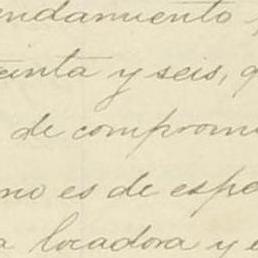 ndamiento
einta y seis,
de comprom
no es de espe
a locadora y e